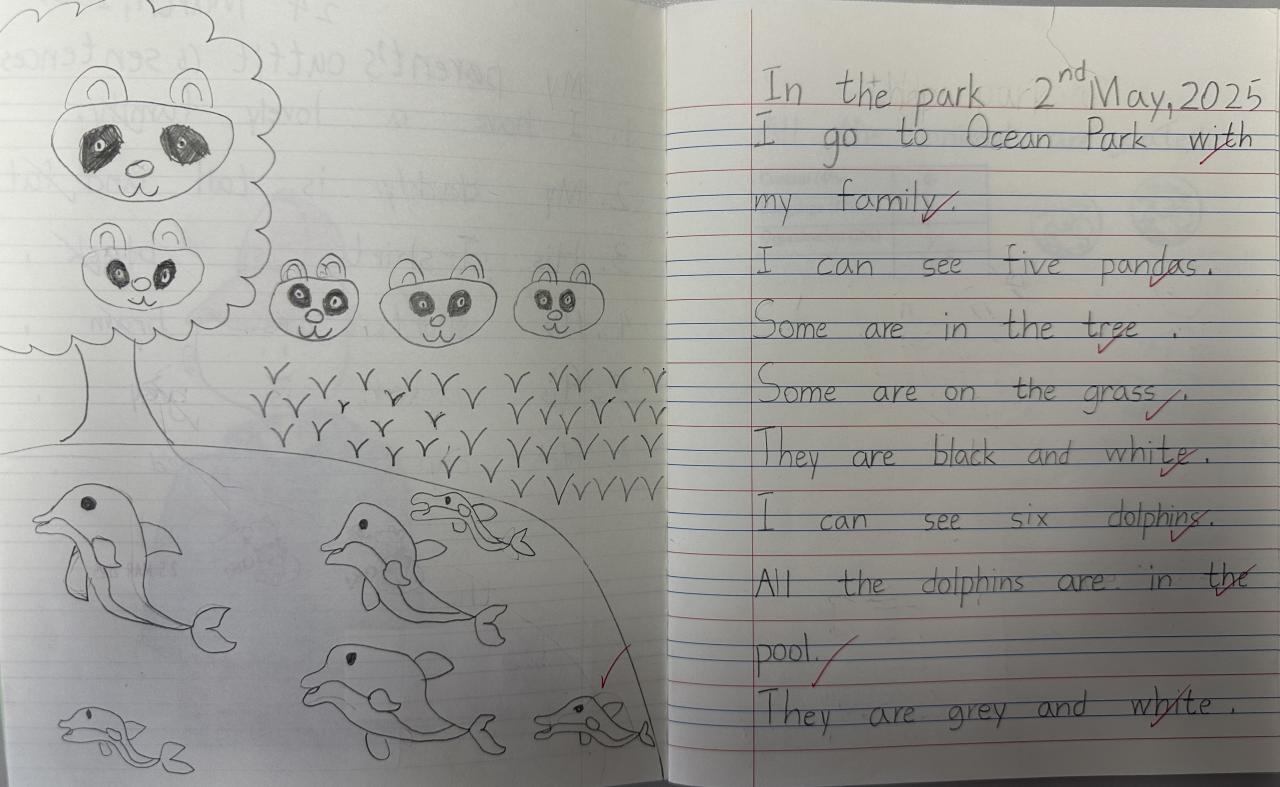 In the park 2nd May, 2025
I go to Ocean Park with
my family.
I can see five pandas.
Some are in the tree.
Some are on the grass.
They are black and white.
I can see six dolphins.
All the dolphins are in the
pool.
They are grey and white.